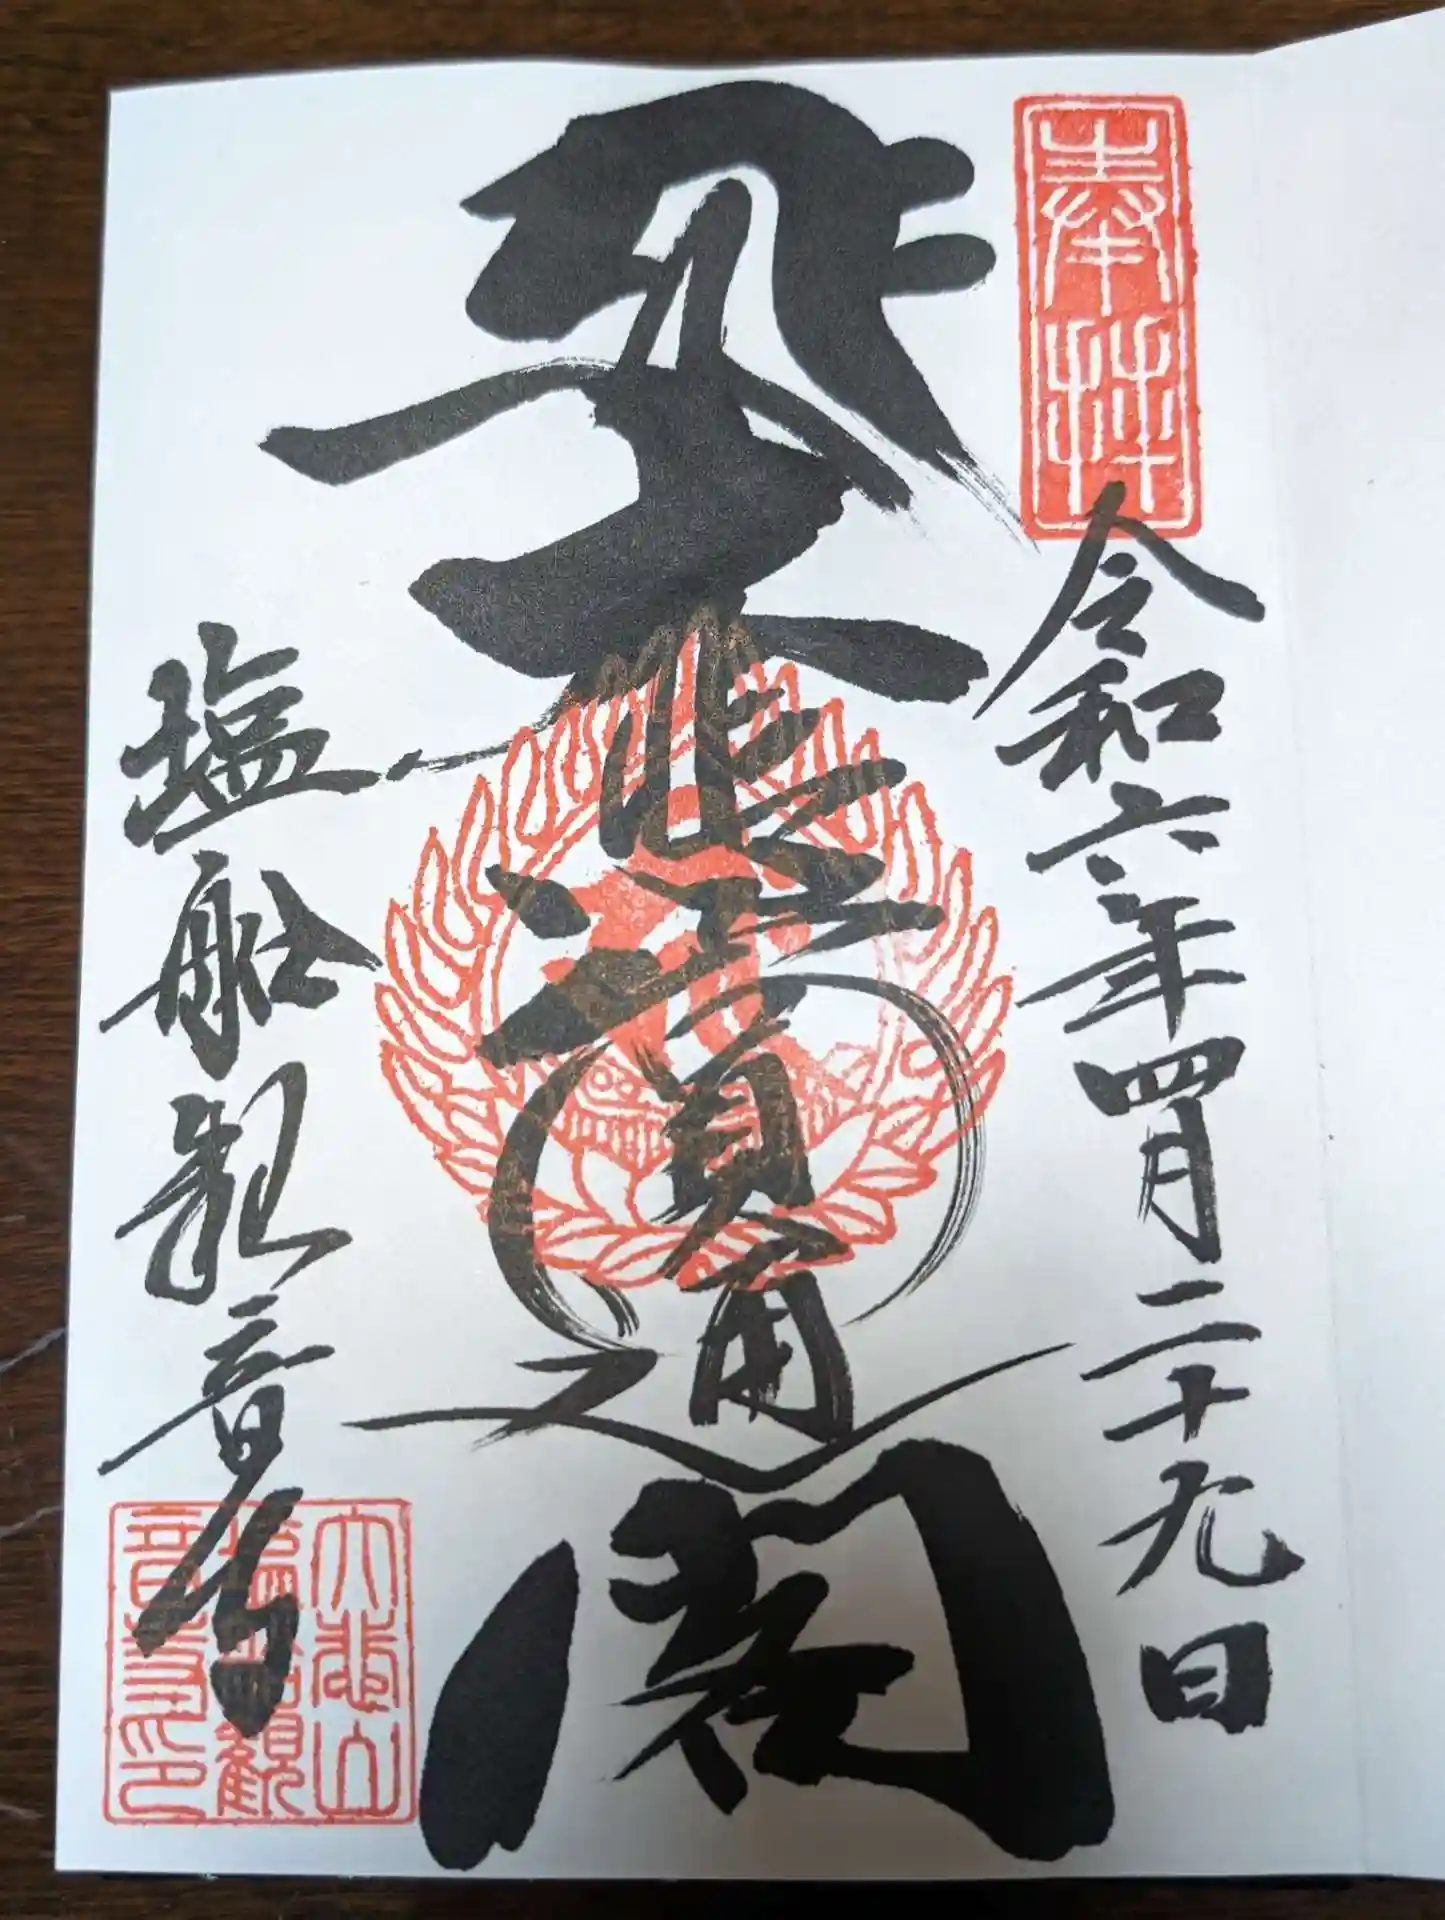 奉拝
令和六年四月二十九日
大悲圓通閣
塩船観音寺
大悲山
塩船観
音寺印